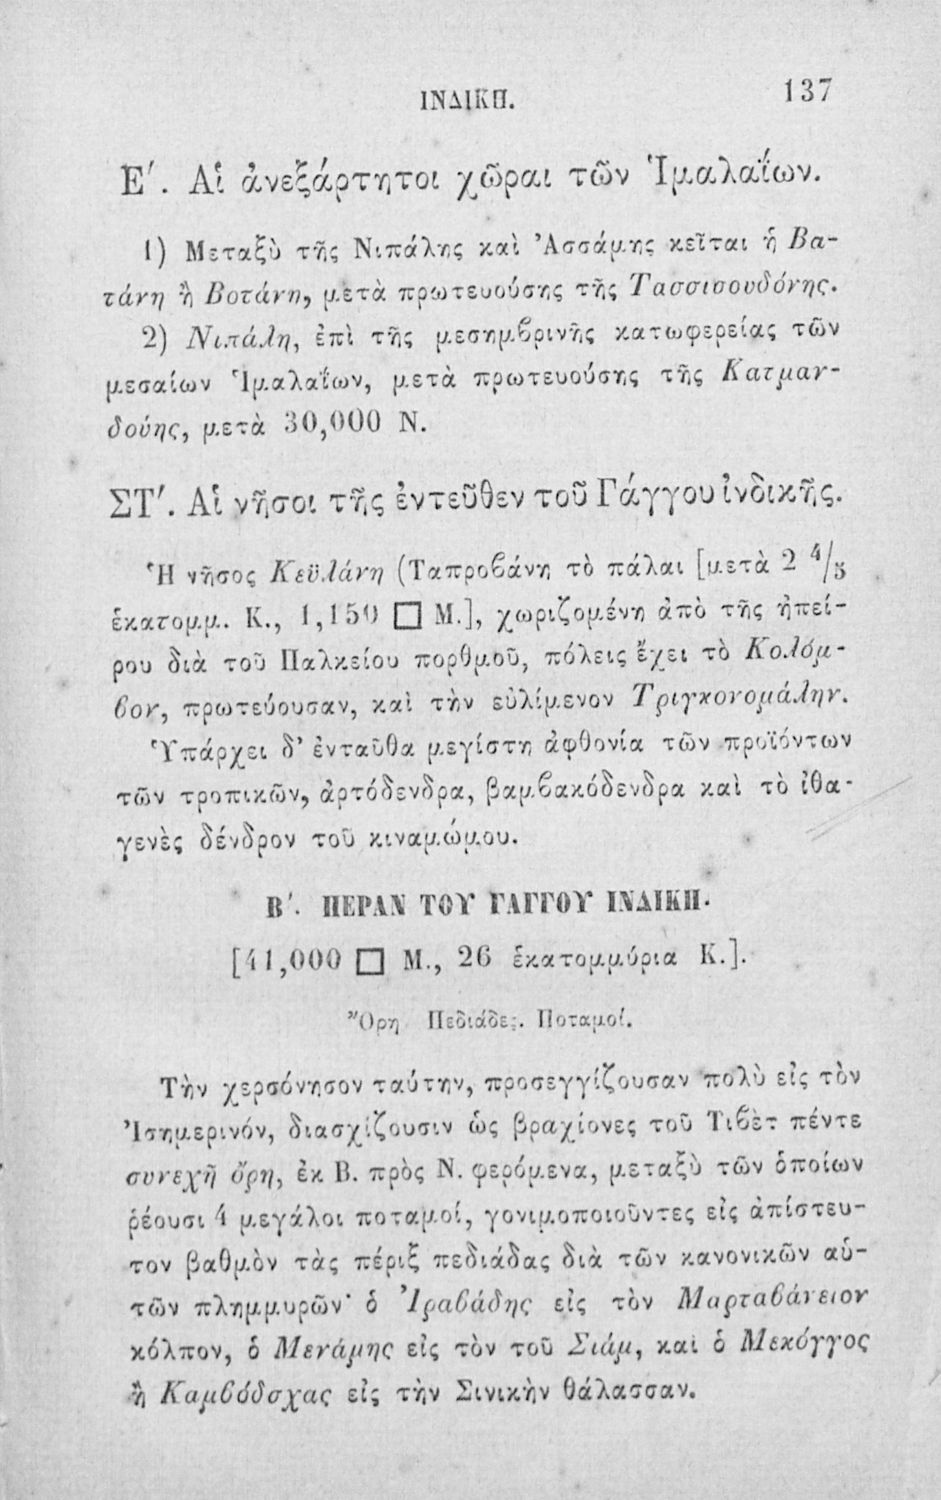 ΙΝΔΙΚΗ. 137
Ε΄. Αἱ ἀνεξάρτητοι χῶραι τῶν Ἱμαλαΐων.
1) Μεταξὺ τῆς Νιπάλης καὶ Ἀσσάμης κεῖται ἡ Βα-
τάνη ἢ Βοτάνη, μετὰ πρωτευούσης τῆς Τασσισουδόνης.
2) Νιπάλη, ἐπὶ τῆς μεσημβρινῆς κατωφερείας τῶν
μεσαίων Ἱμαλαΐων, μετὰ πρωτευούσης τῆς Κατμαν-
δούης, μετὰ 30,000 Ν.
ΣΤ΄. Αἱ νῆσοι τῆς ἐντεῦθεν τοῦ Γάγγου ἰνδικῆς.
Ἡ νῆσος Κεϋλάνη (Ταπροβάνη τὸ πάλαι [μετὰ 2 4/5
ἑκατομμ. Κ., 1,150 □ Μ.], χωριζομένη ἀπὸ τῆς ἠπεί-
ρου διὰ τοῦ Παλκείου πορθμοῦ, πόλεις ἔχει τὸ Κολόμ-
βον, πρωτεύουσαν, καὶ τὴν εὐλίμενον Τριγκονομάλην.
Ὑπάρχει δ' ἐνταῦθα μεγίστη ἀφθονία τῶν προϊόντων
τῶν τροπικῶν, ἀρτόδενδρα, βαμβακόδενδρα καὶ τὸ ἰθα-
γενὲς δένδρον τοῦ κιναμώμου.
Β΄. ΠΕΡΑΝ ΤΟΥ ΓΑΓΓΟΥ ΙΝΔΙΚΗ.
[41,000 □ Μ., 26 ἑκατομμύρια Κ.].
Ὄρη Πεδιάδες. Ποταμοί.
Τὴν χερσόνησον ταύτην, προσεγγίζουσαν πολὺ εἰς τὸν
Ἰσημερινόν, διασχίζουσιν ὡς βραχίονες τοῦ Τιβὲτ πέντε
συνεχῆ ὄρη, ἐκ Β. πρὸς Ν. φερόμενα, μεταξὺ τῶν ὁποίων
ῥέουσι 4 μεγάλοι ποταμοί, γονιμοποιοῦντες εἰς ἀπίστευ-
τον βαθμὸν τὰς πέριξ πεδιάδας διὰ τῶν κανονικῶν αὑ-
τῶν πλημμυρῶν· ὁ Ἰραβάδης εἰς τὸν Μαρταβάνειον
κόλπον, ὁ Μενάμης εἰς τὸν τοῦ Σιάμ, καὶ ὁ Μεκόγγος
ἢ Καμβόδσχας εἰς τὴν Σινικὴν θάλασσαν.